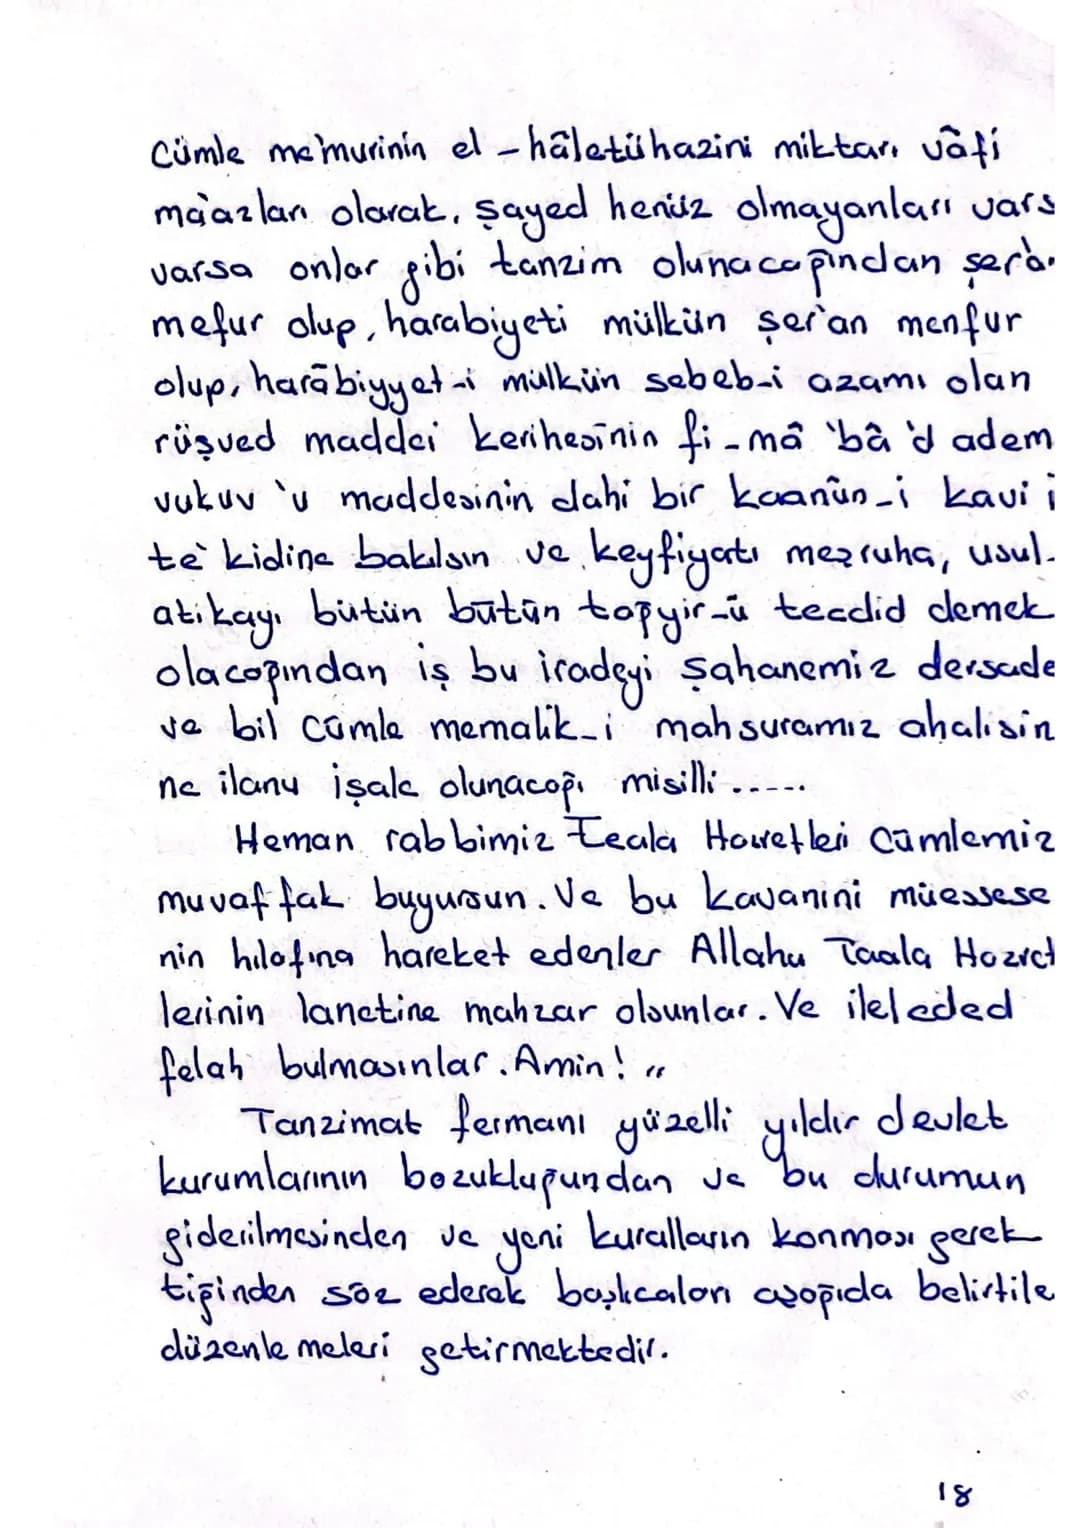 Cümle me'murinin el-hâletühazini miktarı vâfi
maàazları olarak, şayed henüz olmayanları vars
varsa onlar gibi tanzim olunacağından şer'a
mefur olup, harabiyeti mülkün şer'an menfur
olup, harābiyyet-i mülkün sebeb-i azamı olan
rüşved maddei kerihesinin fi-mâ 'bâ'd adem
vukuv 'u maddesinin dahi bir kaanûn-i kavi i
te'kidine bakılsın ve keyfiyatı mezruha, usul-
atikayı bütün bütün tağyir-ü tecdid demek
olacağından iş bu iradeyi şahanemiz dersade
ve bil cümle memalik-i mahsuramız ahalisin
ne ilanu işale olunacağı misilli.....
Heman rabbimiz teala Hazretleri Cümlemiz
muvaffak buyursun. Ve bu kavanini müessese
nin hılafına hareket edenler Allahu Taala Hazret
lerinin lanetine mahzar olsunlar. Ve ilel eded
felah bulmasınlar. Amin! "
Tanzimat fermanı yüzelli yıldır devlet
kurumlarının bozukluğundan ve bu durumun
giderilmesinden ve yeni kuralların konması gerek
tiğinden söz ederek başlıcaları aşağıda belirtile
düzenlemeleri getirmektedir.
18